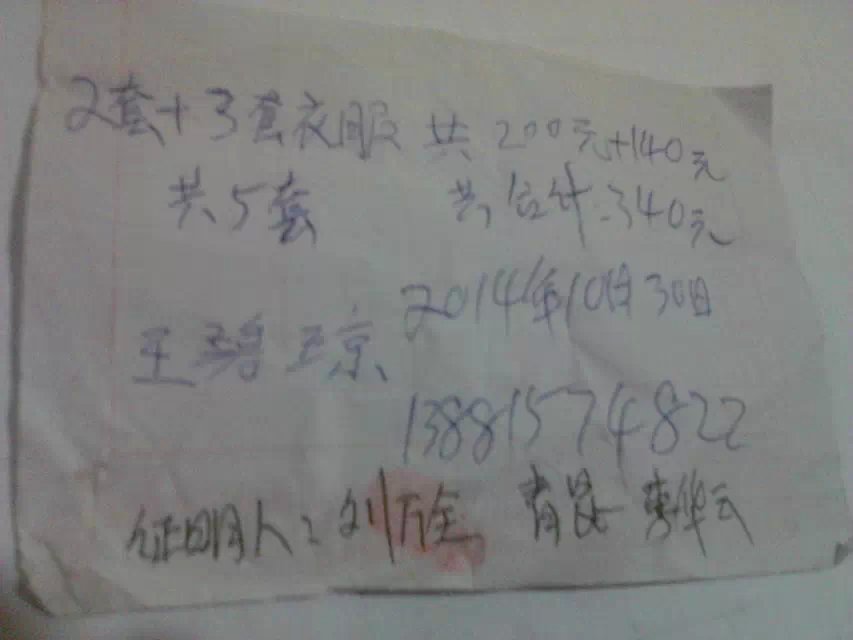 2套+3套衣服 共200元+140元
共5套 共合计:340元
2014年10月30日
王碧 王京
13881574822
证明人: 刘万全 肖昆 李华云